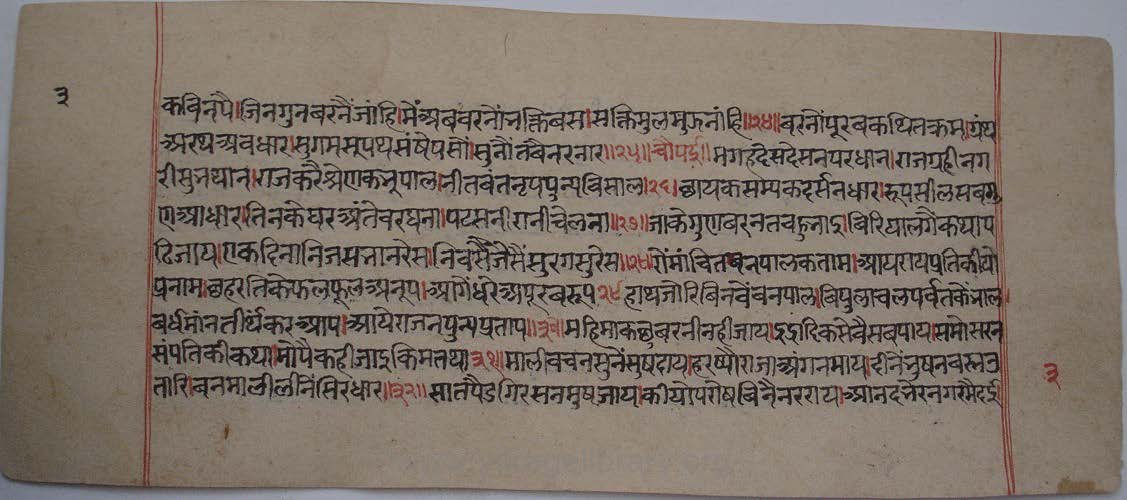 ३
कविनपै।जिनगुनबरनैंजांहि।मैंअबबरनौंभक्तिबस।सक्तिमुलमुझनांहि॥२४॥बरनौंपूरबकथितक्रम।ग्रंथ
अरथअवधार।सुगमसूपथसंषेपसौं।सुनौंतबैनरनार॥२५॥चौपई॥मगहदेसदेसनपरधान।राजग्रहीनग
रीसुनथान।राजकरैश्रेणकभूपाल।नीतवंतनृपपुन्यविसाल।२६।छायकसम्पकदर्सनधार।रूपसीलसबगु
णआधार।तिनकेघरअंतेवरघना।पटसनीरानीचेलना॥२७॥जाकेगुणबरनतबहुभाइ।बिरियालगैंकथाप
ढिजाय।एकदिनानिजसभानरेस।निवसैंजैसैंसुरगसुरेस॥२८॥रोंमांचितबनपालकताम।आयरायप्रतिकीयौ
प्रनाम।छहरतिकेफलफूलअनूप।आगेधरेअपूरबरूप२९हाथजोरिबिनवेंबनपाल।बिपुलाचलपर्वतकेभाल
बर्धमांनतीर्थंकरआप।आयेराजनपुन्यप्रताप।।३०।महिमाकछुबरनीनहीजाय।इंद्रादिकसेवैसबपाय।समोसरन
संपतिकीकथा।मोपैकहीजाइकिमतथा३१।मालीबचनसुनेंसुषदाय।हरष्यौराजाअंगनमाय।दीनेंभुषनबस्त्रउ
तारि।बनमालीलीनेसिरधार॥३२॥सातपैडगिरसनमुषजाय।कीयोपरोषबिनैनरराय।आनदभेरनगरमैदई।
३